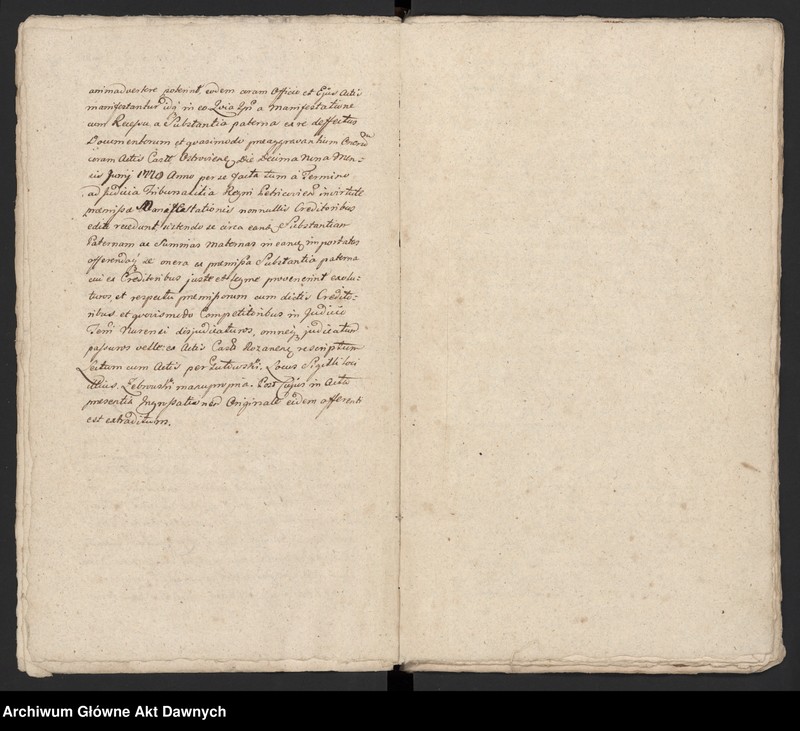 animadvertere poterint, eodem coram Officio et Ejus Actis
manifestantur idq in eo Quia Ipsi a manifestatione
cum Recessu a Substantia paterna ex re deffectus
Documentorum et quovismodo praeaggravantium Onerū
coram Actis Castr Ostrovien Die Decima Nona Men=
sis Junij 1770 Anno per se facta tum a Termino
ad Judicia Tribunalitia Regni Petricovien in virtute
praemissae Manifestationis nonnullis Creditoribus
edito recedunt, sistendo se circa eand Substantiam
Paternam ac Summas maternas in eandq importatas
offerendoq se onera ex praemissa Substantia paterna
cui ex Creditoribus juste et legme provenerint exolu=
turos, et respectu praemissorum cum dictis Credito=
ribus et quovismodo Competitoribus in Judicio
Terri Nurensi disjudicaturos, omneq judicatum
passuros velle. ex Actis Castr Rozanen rescriptum
Lectum cum Actis per Gutowski. Locus Sigilli
Zebrowski manu propria. Post Cujus in Acta
presentia Ingrossationem Originale eidem offerenti
est extraditum.
Archiwum Główne Akt Dawnych